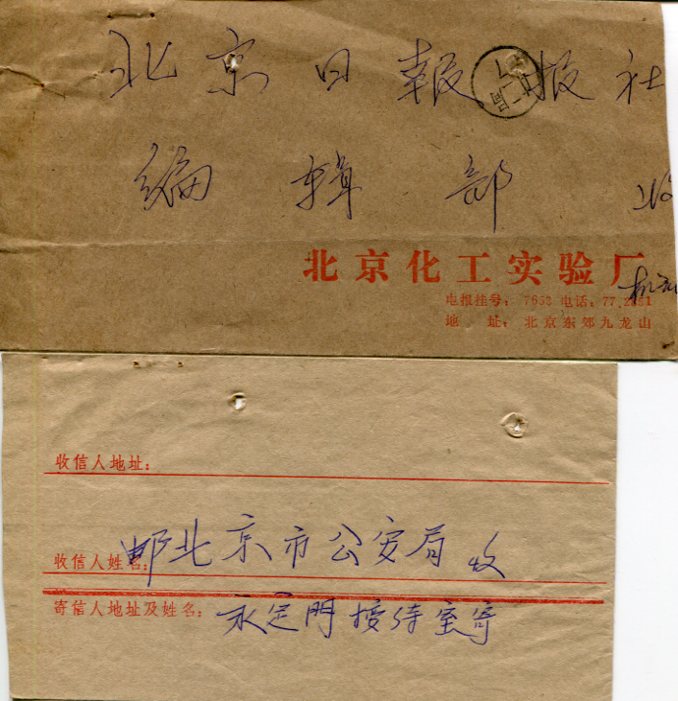 北京日报报社
编辑部 收
北京化工实验厂
电报挂号：7653 电话：77.2881
地 址：北京东郊九龙山
收信人地址：
收信人姓名：
邮北京市公安局 收
寄信人地址及姓名：永定门接待室寄